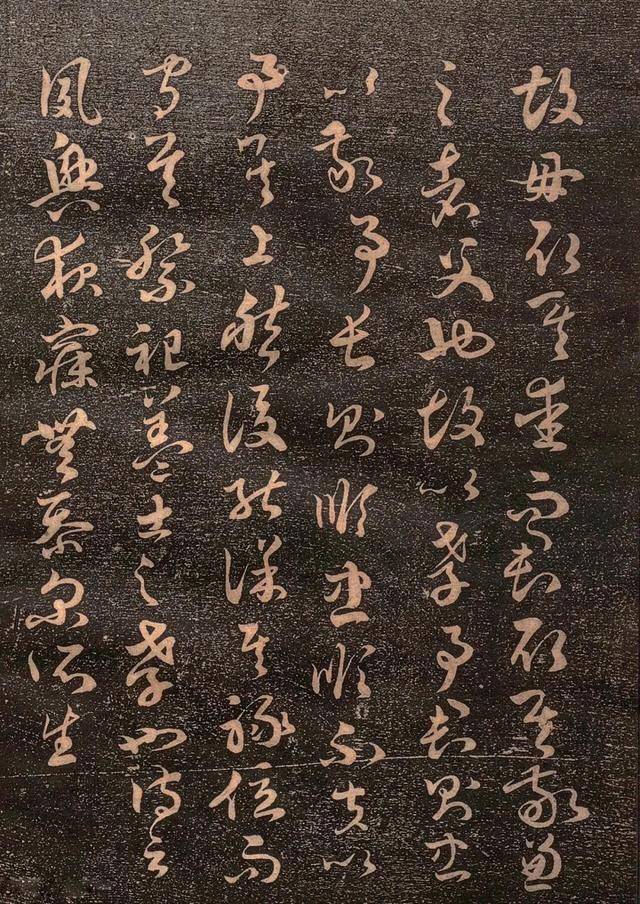 故母取其愛而君取其敬兼
之者父也故以孝事君則忠
以敬事長則順忠順不失以
事其上然後能保其祿位而
守其祭祀蓋士之孝也詩云
夙興夜寐無忝尔所生